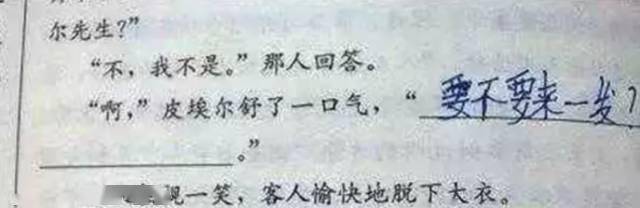 尔先生?”
“不,我不是。”那人回答。
“啊,”皮埃尔舒了一口气,“要不要来一发?
。”
一笑,客人愉快地脱下大衣。